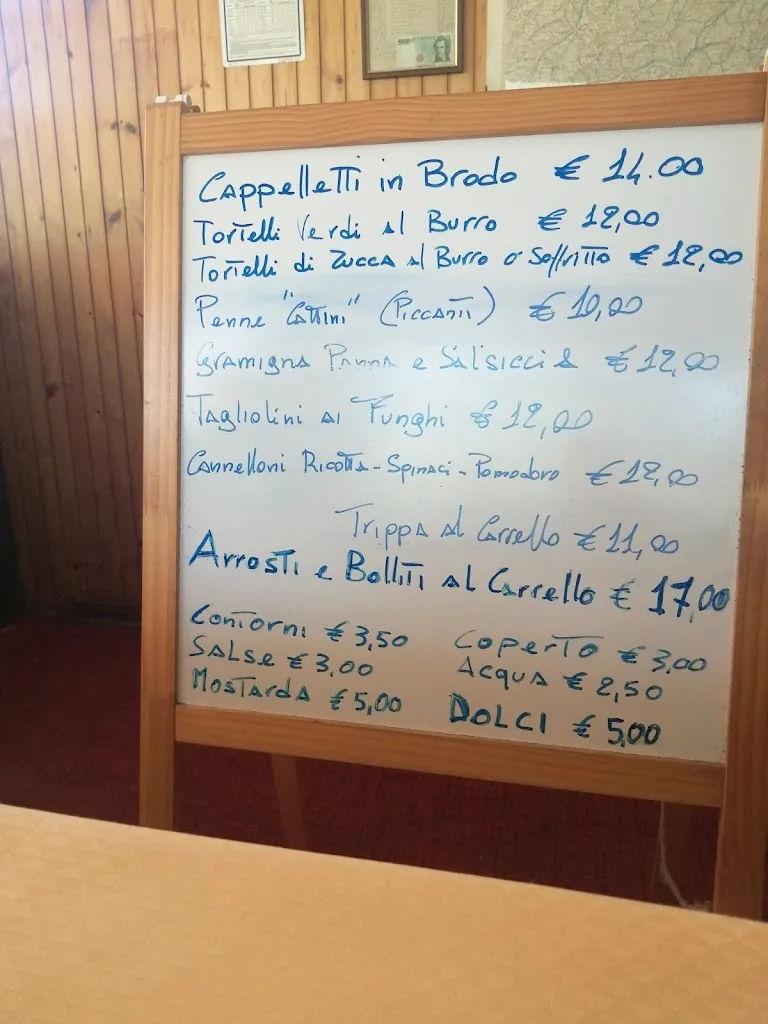 Cappelletti in Brodo € 14.00
Tortelli Verdi al Burro € 12,00
Tortelli di Zucca al Burro o Soffritto € 12,00
Penne "Cattini" (Piccanti) € 10,00
Gramigna Panna e Salsiccia € 12,00
Tagliolini ai Funghi € 12,00
Cannelloni Ricotta - Spinaci - Pomodoro € 12,00
Trippa al Carrello € 11,00
Arrosti e Bolliti al Carrello € 17,00
Contorni € 3,50
Salse € 3,00
Mostarda € 5,00
Coperto € 3,00
Acqua € 2,50
DOLCI € 5,00